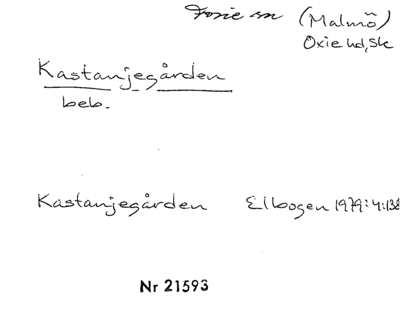 Foxie sn (Malmö)
Oxie hd, Sk
Kastanjegården
beb.
Kastanjegården Elbogen 1979:4:138
Nr 21593